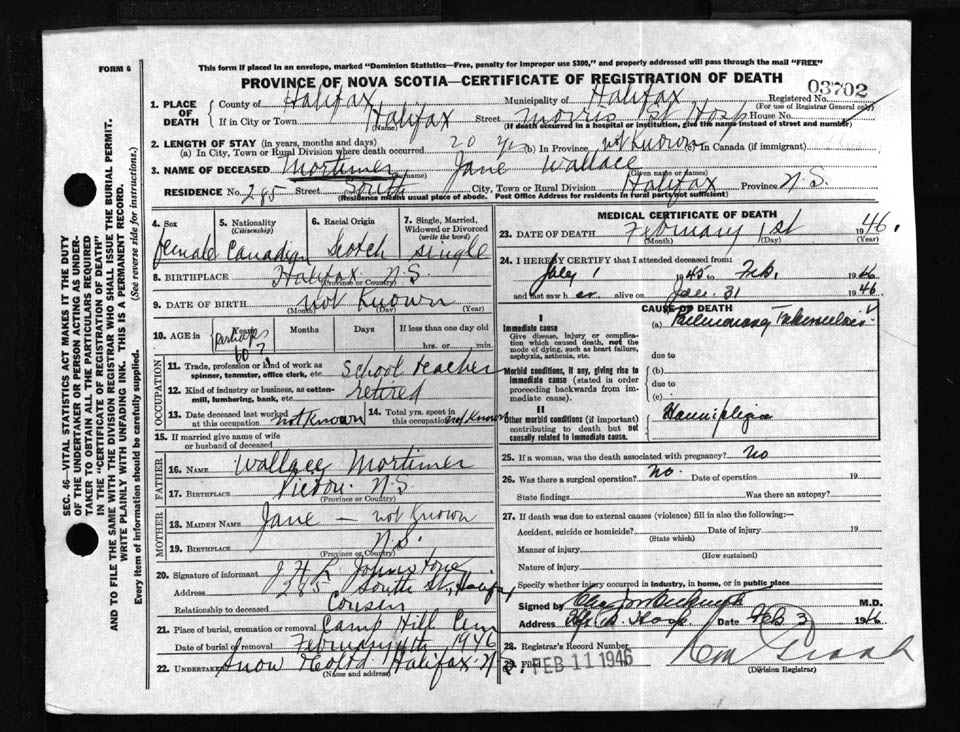 FORM 6
This form if placed in an envelope, marked "Dominion Statistics—Free, penalty for improper use $300," and properly addressed will pass through the mail "FREE"
PROVINCE OF NOVA SCOTIA—CERTIFICATE OF REGISTRATION OF DEATH
03702
1. PLACE OF DEATH County of Halifax Municipality of Halifax Registered No.
(For use of Registrar General only)
If in City or Town Halifax Street Morris St Hosp House No.
(Name) (If death occurred in a hospital or institution, give the name instead of street and number)
2. LENGTH OF STAY (in years, months and days)
(a) In City, Town or Rural Division where death occurred 20 yr (b) In Province not known (c) In Canada (if immigrant)
3. NAME OF DECEASED Mortimer Jane Wallace
(Given name or names)
RESIDENCE No. 285 Street South City, Town or Rural Division Halifax Province N.S.
(Residence means usual place of abode. Post Office Address for residents in rural parts not sufficient)
4. Sex 5. Nationality (Citizenship) 6. Racial Origin 7. Single, Married, Widowed or Divorced (write the word)
female Canadian Scotch Single
8. BIRTHPLACE Halifax N.S.
(Province or Country)
9. DATE OF BIRTH not known
(Month) (Day) (Year)
10. AGE in Years Months Days If less than one day old
perhaps 60? hrs. or min.
OCCUPATION
11. Trade, profession or kind of work as spinner, teamster, office clerk, etc. School teacher
12. Kind of industry or business, as cotton-mill, lumbering, bank, etc. retired
13. Date deceased last worked at this occupation not known 14. Total yrs. spent in this occupation not known
15. If married give name of wife or husband of deceased
FATHER
16. NAME Wallace Mortimer
17. BIRTHPLACE Pictou N.S.
(Province or Country)
MOTHER
18. MAIDEN NAME Jane — not known
19. BIRTHPLACE N.S.
(Province or Country)
20. Signature of informant J H L Johnstone
Address 285 South St, Halifax
Relationship to deceased Cousin
21. Place of burial, cremation or removal Camp Hill Cem
Date of burial or removal February 4th 1946
22. Undertaker Snow Halifax N.S.
(Name and address)
MEDICAL CERTIFICATE OF DEATH
23. DATE OF DEATH February 1st 1946.
(Month) (Day) (Year)
24. I HEREBY CERTIFY that I attended deceased from:
July 1 1945 to Feb. 1946
and last saw h er alive on Jan. 31 1946
CAUSE OF DEATH
I
Immediate cause
Give disease, injury, or complication which caused death, not the mode of dying, such as heart failure, asphyxia, asthenia, etc.
(a) Pulmonary Tuberculosis
due to
Morbid conditions, if any, giving rise to immediate cause (stated in order proceeding backwards from immediate cause).
(b)
due to
(c)
II
Other morbid conditions (if important) contributing to death but not causally related to immediate cause.
Hemiplegia
25. If a woman, was the death associated with pregnancy? No
26. Was there a surgical operation? No. Date of operation 19
State findings Was there an autopsy?
27. If death was due to external causes (violence) fill in also the following:—
Accident, suicide or homicide? Date of injury 19
(State which)
Manner of injury
(How sustained)
Nature of injury
Specify whether injury occurred in industry, in home, or in public place
Signed by M.D.
Address Hosp. Date Feb 3 1946
28. Registrar's Record Number
29. Filed FEB 11 1946
(Division Registrar)
SEC. 46—VITAL STATISTICS ACT MAKES IT THE DUTY
OF THE UNDERTAKER OR PERSON ACTING AS UNDER-
TAKER TO OBTAIN ALL THE PARTICULARS REQUIRED
IN THE "CERTIFICATE OF REGISTRATION OF DEATH"
AND TO FILE THE SAME WITH THE DIVISION REGISTRAR WHO SHALL ISSUE THE BURIAL PERMIT.
WRITE PLAINLY WITH UNFADING INK. THIS IS A PERMANENT RECORD.
Every item of information should be carefully supplied. (See reverse side for instructions.)